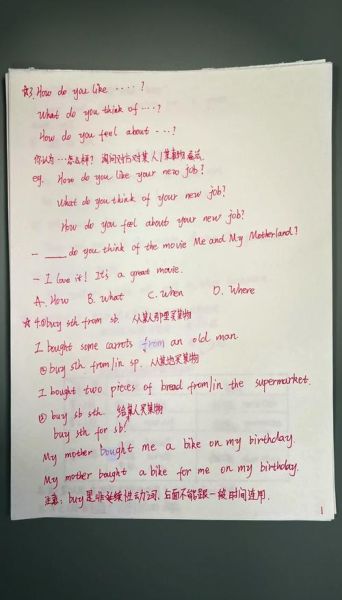 ☆3. How do you like ····?
What do you think of ···?
How do you feel about ···?
你认为···怎么样? 询问对方对某人/某事物看法
eg. How do you like your new job?
What do you think of your new job?
How do you feel about your new job?
- ____ do you think of the movie Me and My Motherland?
- I love it! It's a great movie.
A. How B. What C. When D. Where
☆ 4.①buy sth from sb. 从某人那里买某物
I bought some carrots from an old man
②buy sth from/in sp. 从某地买某物
I bought two pieces of bread from/in the supermarket.
③ buy sb sth. 给某人买某物
buy sth for sb.
My mother bought me a bike on my birthday.
My mother bought a bike for me on my birthday.
注意: buy是非延续性动词,后面不能跟一段时间连用.
1